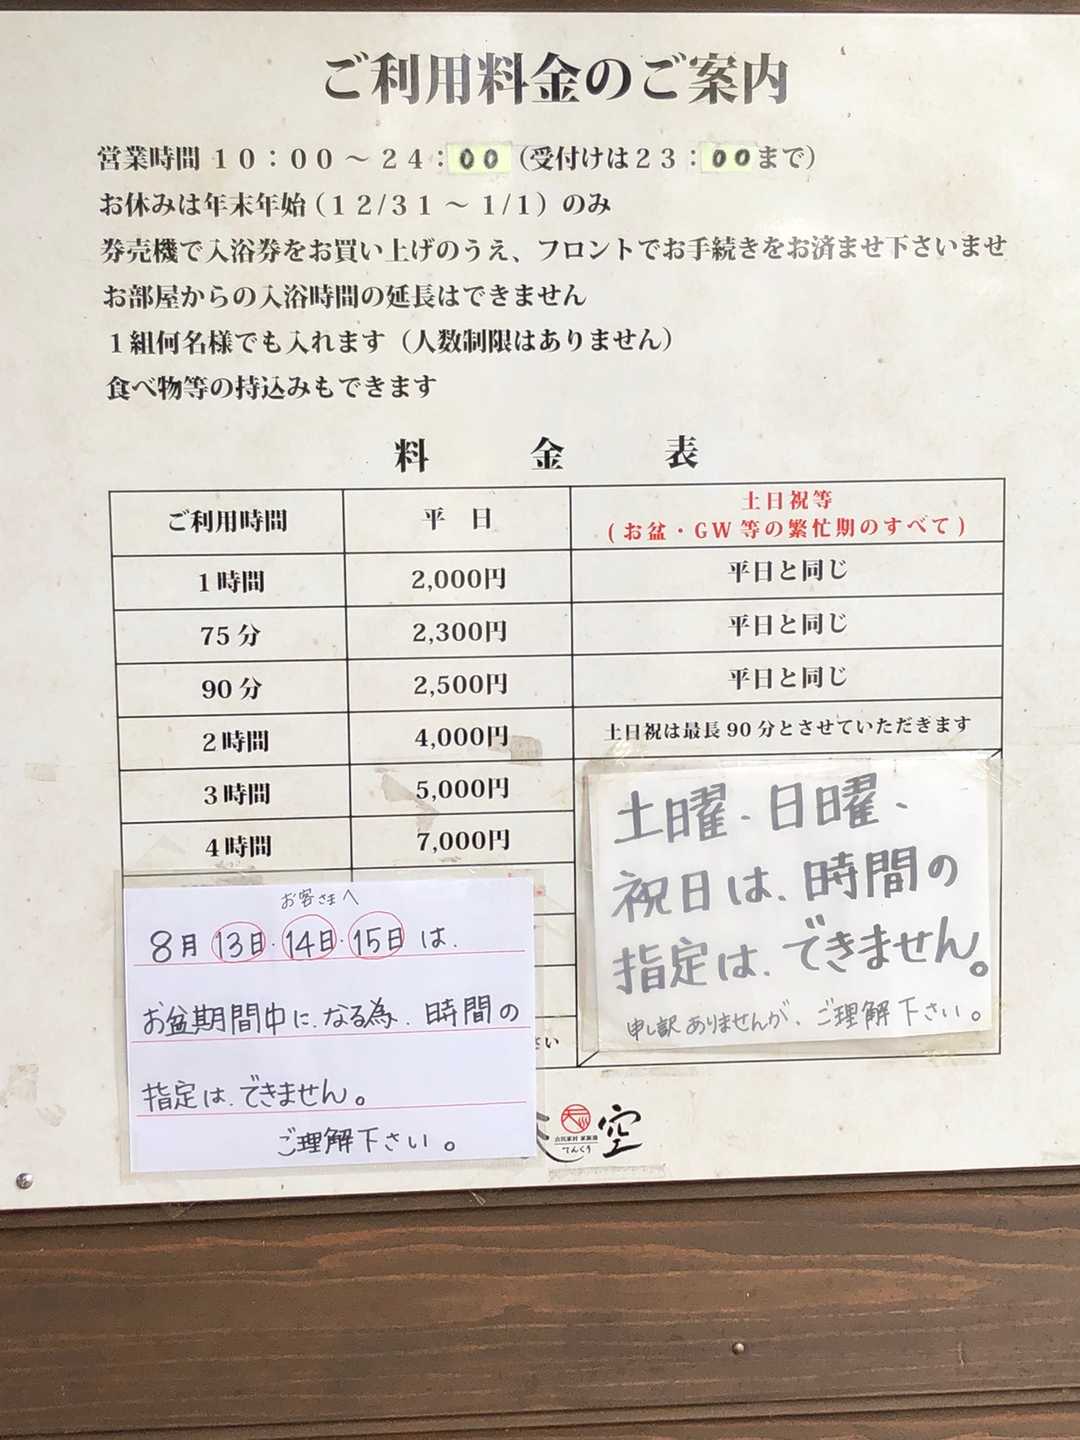 ご利用料金のご案内
営業時間 10:00～24:00（受付けは23:00まで）
お休みは年末年始（12/31～1/1）のみ
券売機で入浴券をお買い上げのうえ、フロントでお手続きをお済ませ下さいませ
お部屋からの入浴時間の延長はできません
1組何名様でも入れます（人数制限はありません）
食べ物等の持込みもできます
料 金 表
ご利用時間 平 日 土日祝等
(お盆・GW等の繁忙期のすべて)
1時間 2,000円 平日と同じ
75分 2,300円 平日と同じ
90分 2,500円 平日と同じ
2時間 4,000円 土日祝は最長90分とさせていただきます
3時間 5,000円
4時間 7,000円
土曜、日曜、
祝日は、時間の
指定は、できません。
申し訳ありませんが、ご理解下さい。
お客さまへ
8月 13日・14日・15日は、
お盆期間中に、なる為、時間の
指定は、できません。
ご理解下さい。
さい
空
てんくう